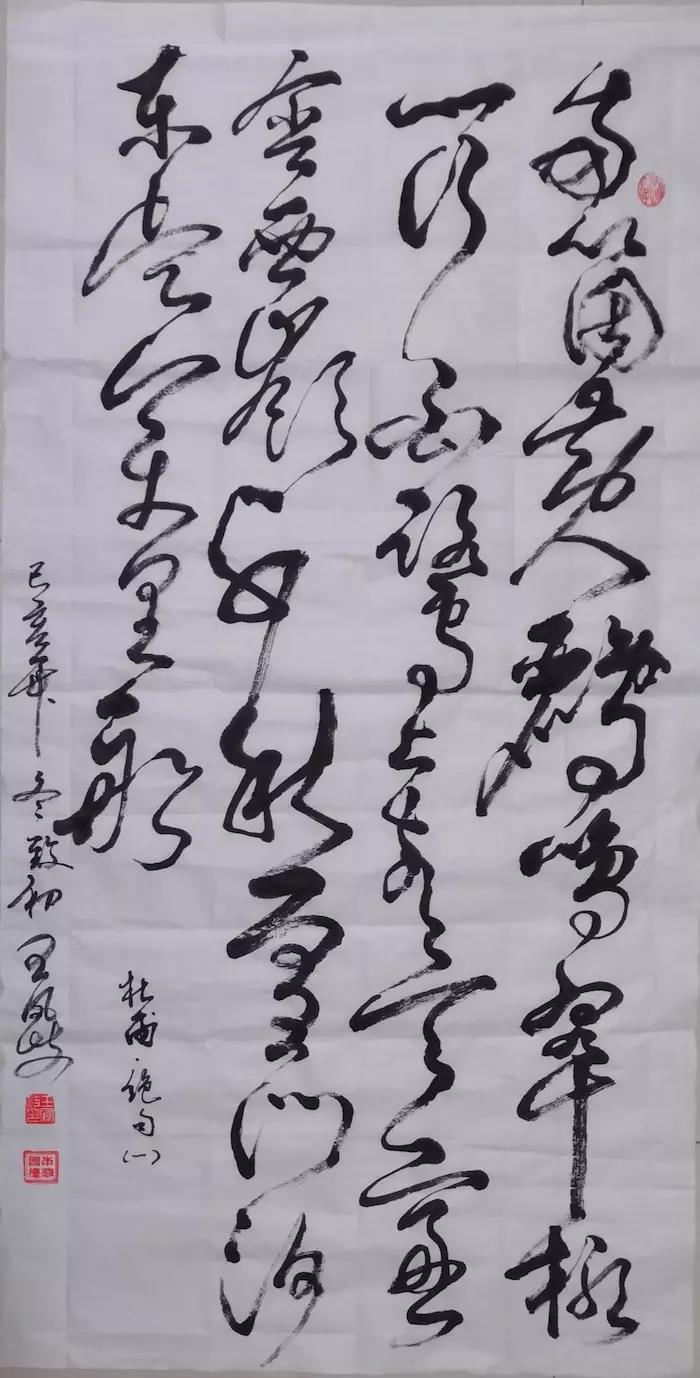 两箇黄鹂鸣翠柳
一行白鹭上青天窗
含西岭千秋雪门泊
东吴万里船
杜甫·绝句(一)
己亥年冬致初王凤岐